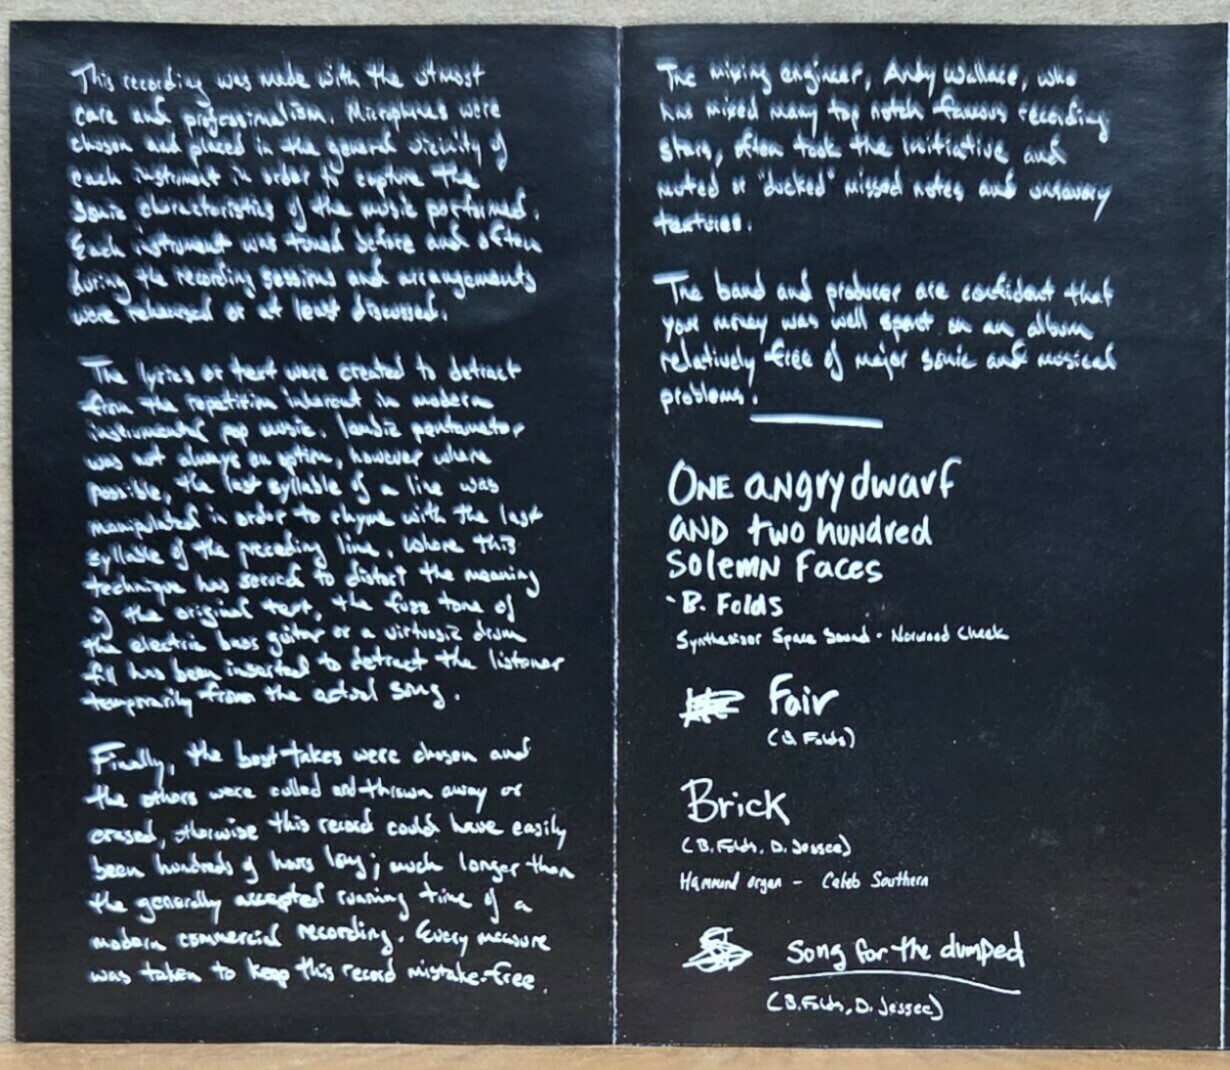 This recording was made with the utmost
care and professionalism. Microphones were
chosen and placed in the general vicinity of
each instrument in order to capture the
sonic characteristics of the music performed.
Each instrument was tuned before and often
during the recording sessions and arrangements
were rehearsed or at least discussed.
The lyrics or text were created to detract
from the repetition inherent in modern
instrumental pop music. Iambic pentameter
was not always an option, however where
possible, the last syllable of a line was
manipulated in order to rhyme with the last
syllable of the preceding line. Where this
technique has served to distort the meaning
of the original text, the fuzz tone of
the electric bass guitar or a virtuosic drum
fill has been inserted to detract the listener
temporarily from the actual song.
Finally, the best takes were chosen and
the others were culled and thrown away or
erased, otherwise this record could have easily
been hundreds of hours long; much longer than
the generally accepted running time of a
modern commercial recording. Every measure
was taken to keep this record mistake-free.
The mixing engineer, Andy Wallace, who
has mixed many top notch famous recording
stars, often took the initiative and
muted or "ducked" missed notes and unsavory
textures.
The band and producer are confident that
your money was well spent on an album
relatively free of major sonic and musical
problems.
ONE angry dwarf
AND two hundred
Solemn Faces
-B. Folds
Synthesizor Space Sound - Norwood Cheek
Fair
(B. Folds)
Brick
(B. Folds, D. Jessee)
Hammond organ - Caleb Southern
Song for the dumped
(B. Folds, D. Jessee)